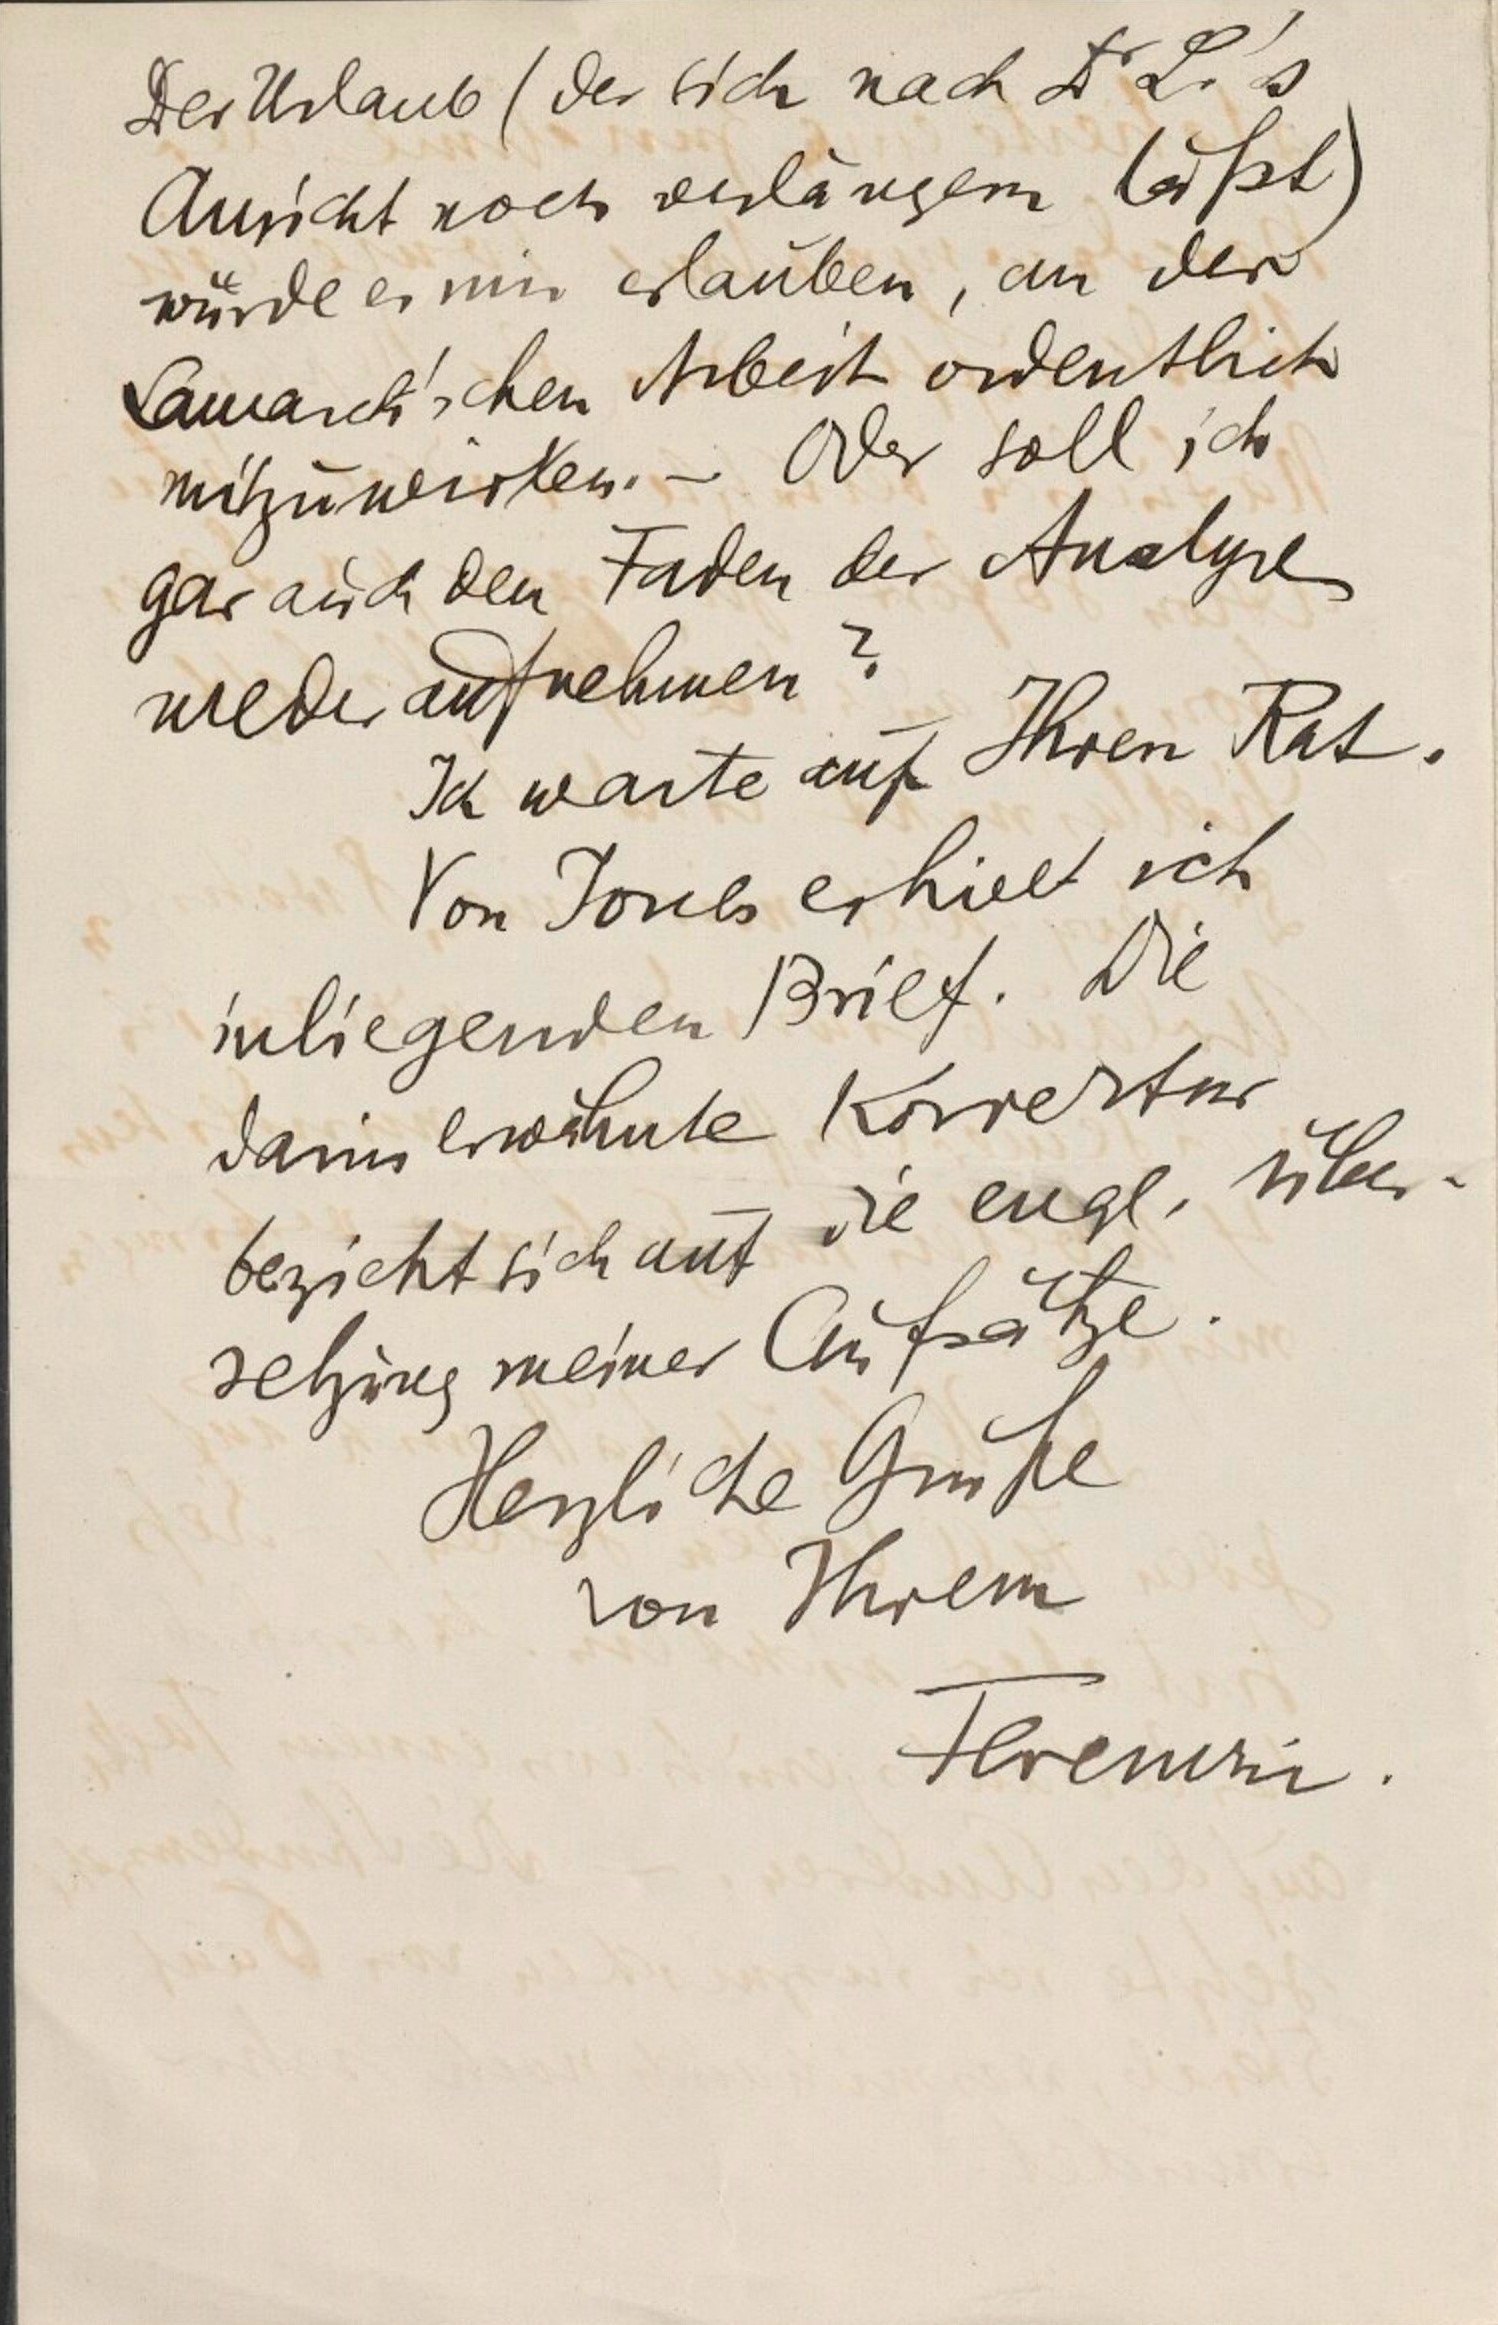 Der Urlaub (der sich nach Dr L.'s
Ansicht noch verlängern läßt)
würde es mir erlauben, an der
Lamarck'schen Arbeit ordentlich
mitzuwirken. – Oder soll ich
gar auch den Faden der Analyse
wieder aufnehmen?
Ich warte auf Ihren Rat.
Von Jones erhielt ich
inliegenden Brief. Die
darin erwähnte Korrektur
bezieht sich auf die engl. Über-
setzung meiner Aufsätze.
Herzliche Grüße
von Ihrem
Ferenczi.